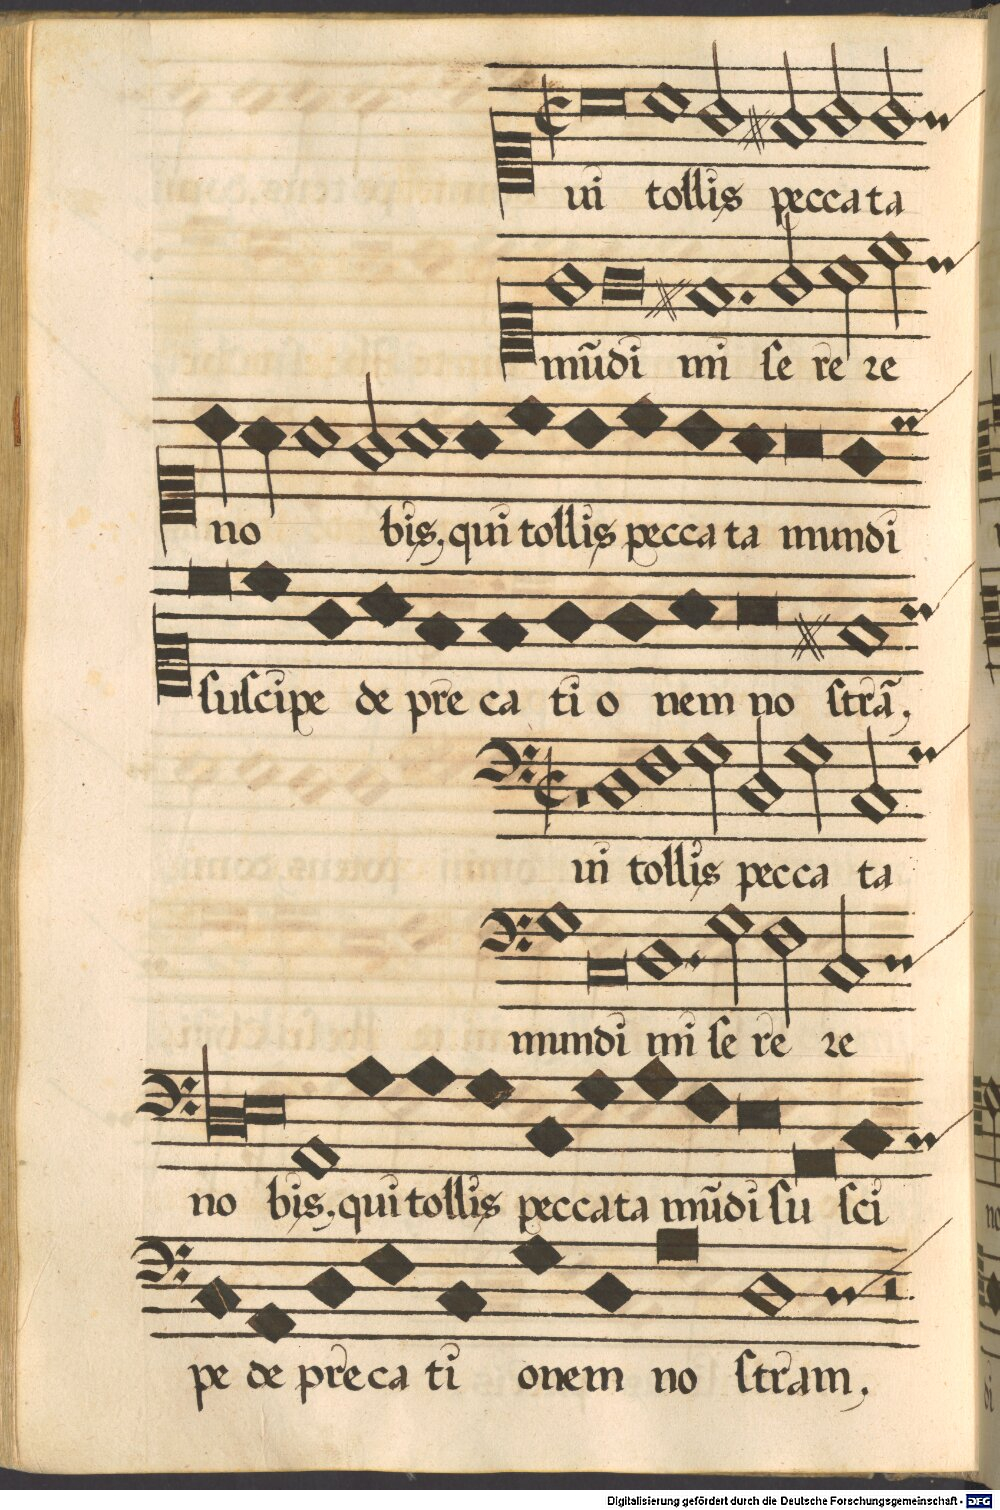 ui tollis peccata
mũdi mi se re re
no bis, qui tollis peccata mundi
suscipe de preca ti o nem no strã,
ui tollis pecca ta
mundi mi se re re
no bis, qui tollis peccata mũdi su sci
pe de preca ti onem no stram,
Digitalisierung gefördert durch die Deutsche Forschungsgemeinschaft - DFG